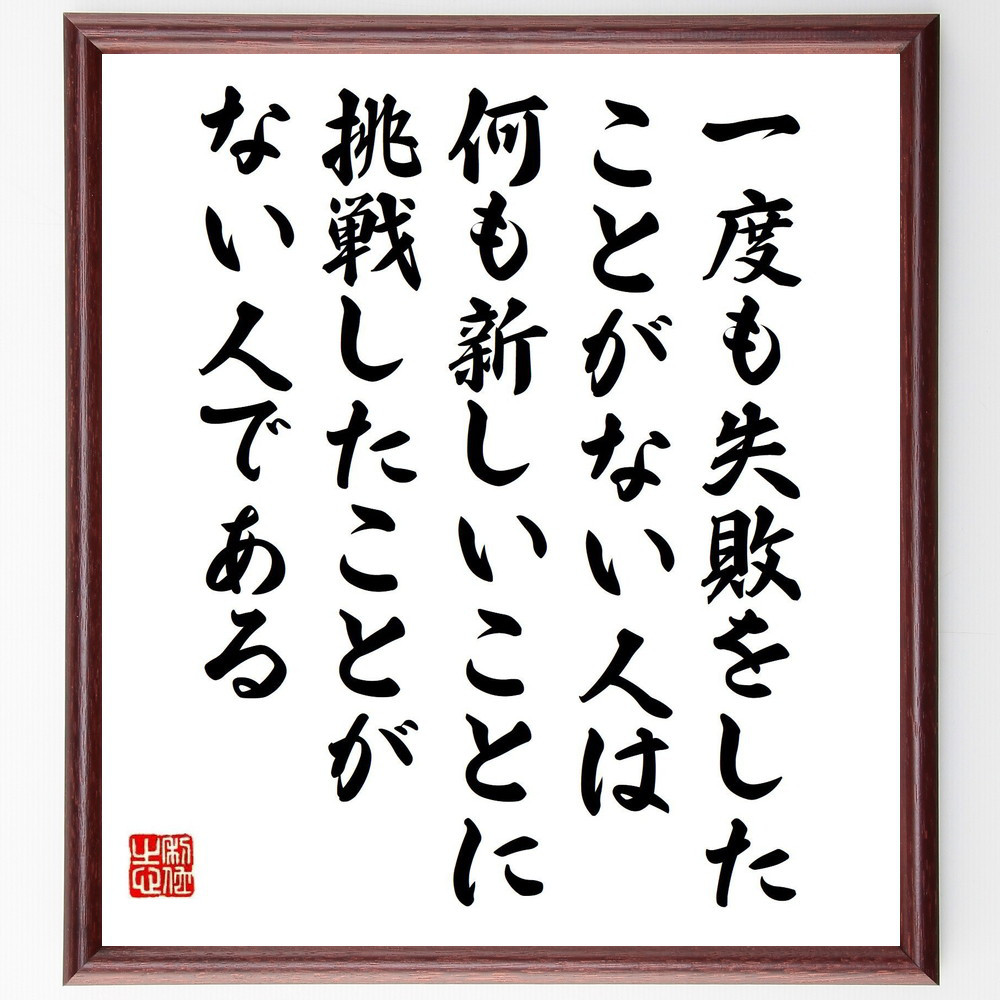 一度も失敗をした
ことがない人は
何も新しいことに
挑戦したことが
ない人である